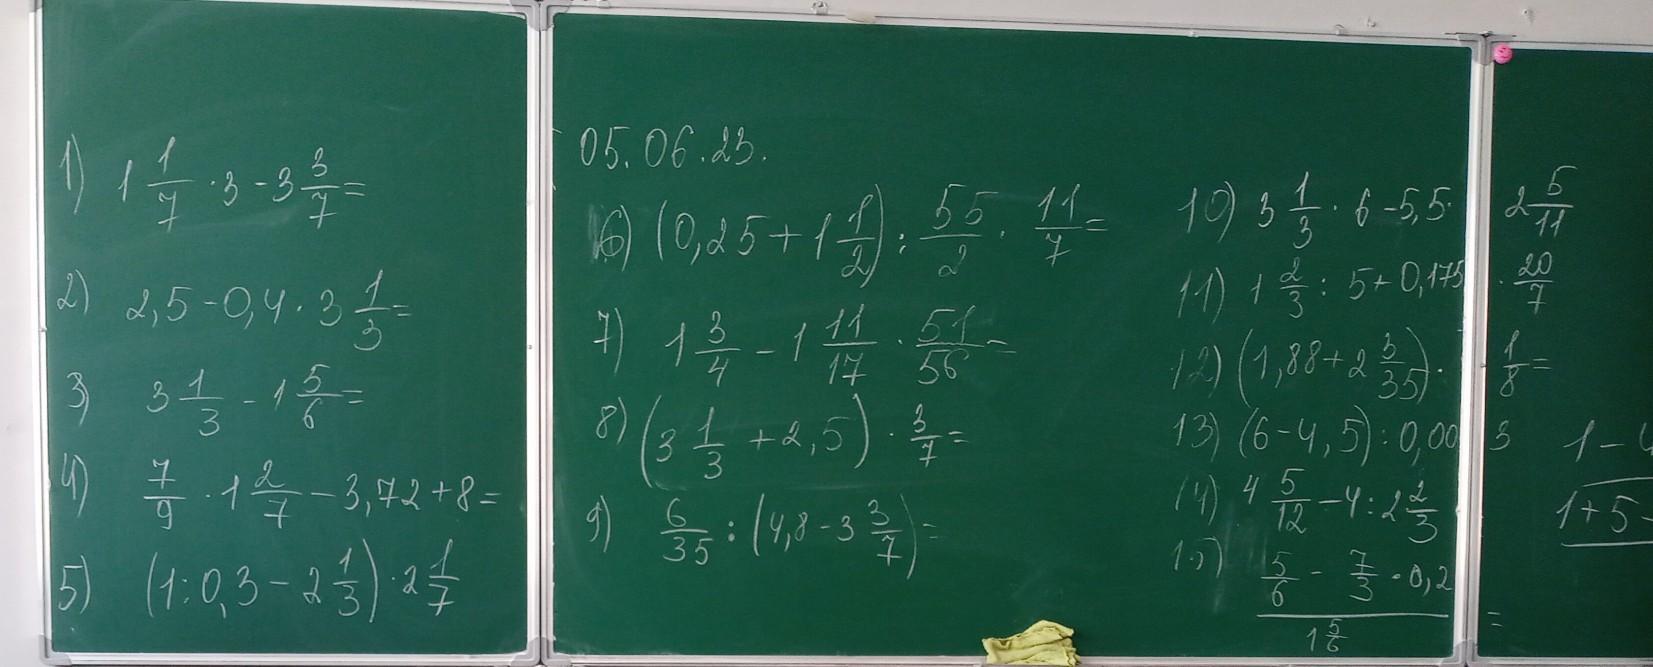 1) 1 1/7 · 3 - 3 3/7 =
2) 2,5 - 0,4 · 3 1/3 =
3) 3 1/3 - 1 5/6 =
4) 7/9 · 1 2/7 - 3,72 + 8 =
5) (1 : 0,3 - 2 1/3) · 2 1/7
05.06.23.
6) (0,25 + 1 1/2) : 55/2 · 11/7 =
7) 1 3/4 - 1 11/17 · 51/56 =
8) (3 1/3 + 2,5) · 3/7 =
9) 6/35 : (4,8 - 3 3/7) =
10) 3 1/3 · 6 - 5,5 · 2 5/11
11) 1 2/3 : 5 + 0,175 · 20/7
12) (1,88 + 2 3/35) · 1/8 =
13) (6 - 4,5) : 0,003
14) 4 5/12 - 4 : 2 2/3
15) (5/6 - 7/3 · 0,2) / (1 5/6) =
1 - 4
1 + 5 -